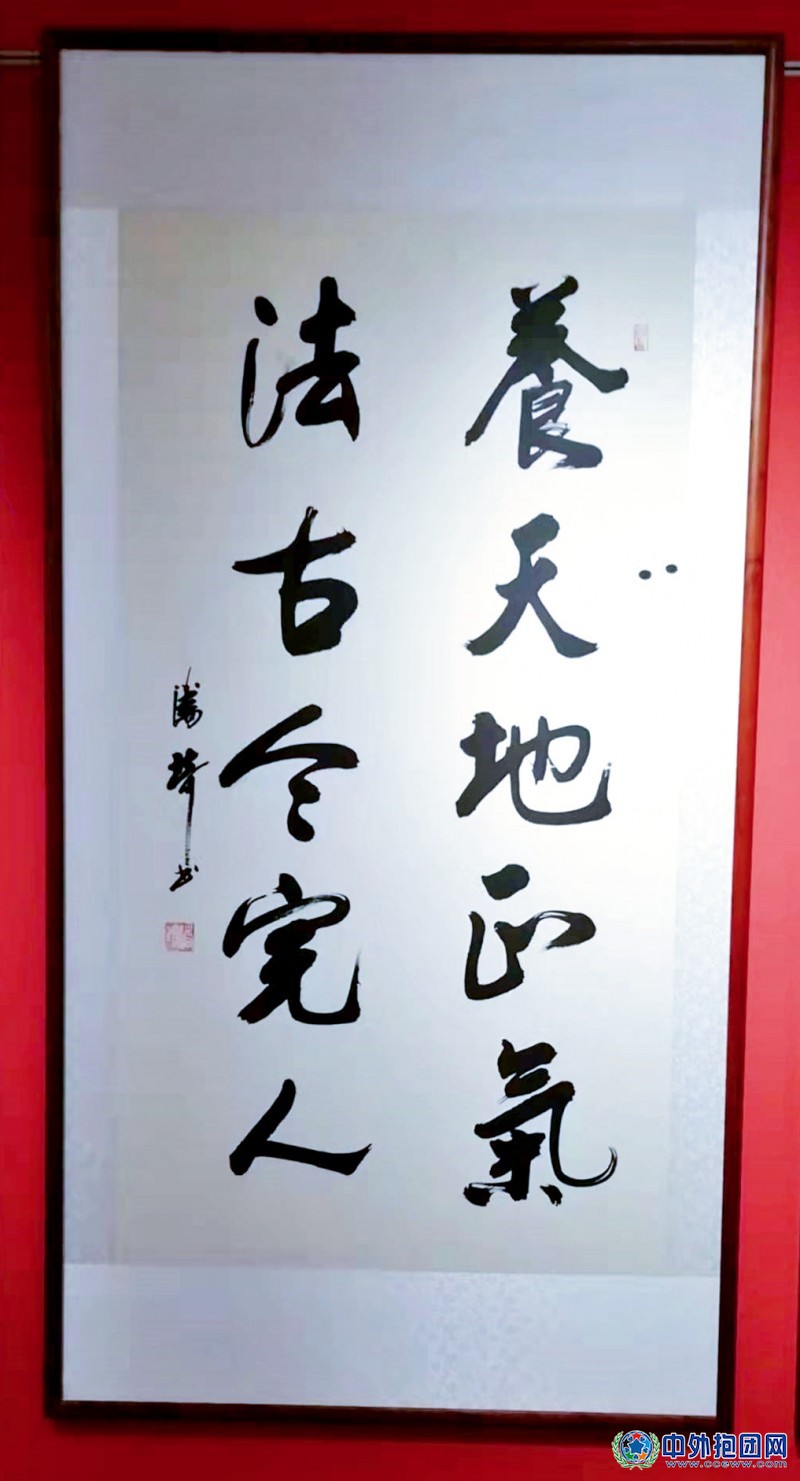 養天地正氣
法古今完人
中外抱团网
www.cceww.com